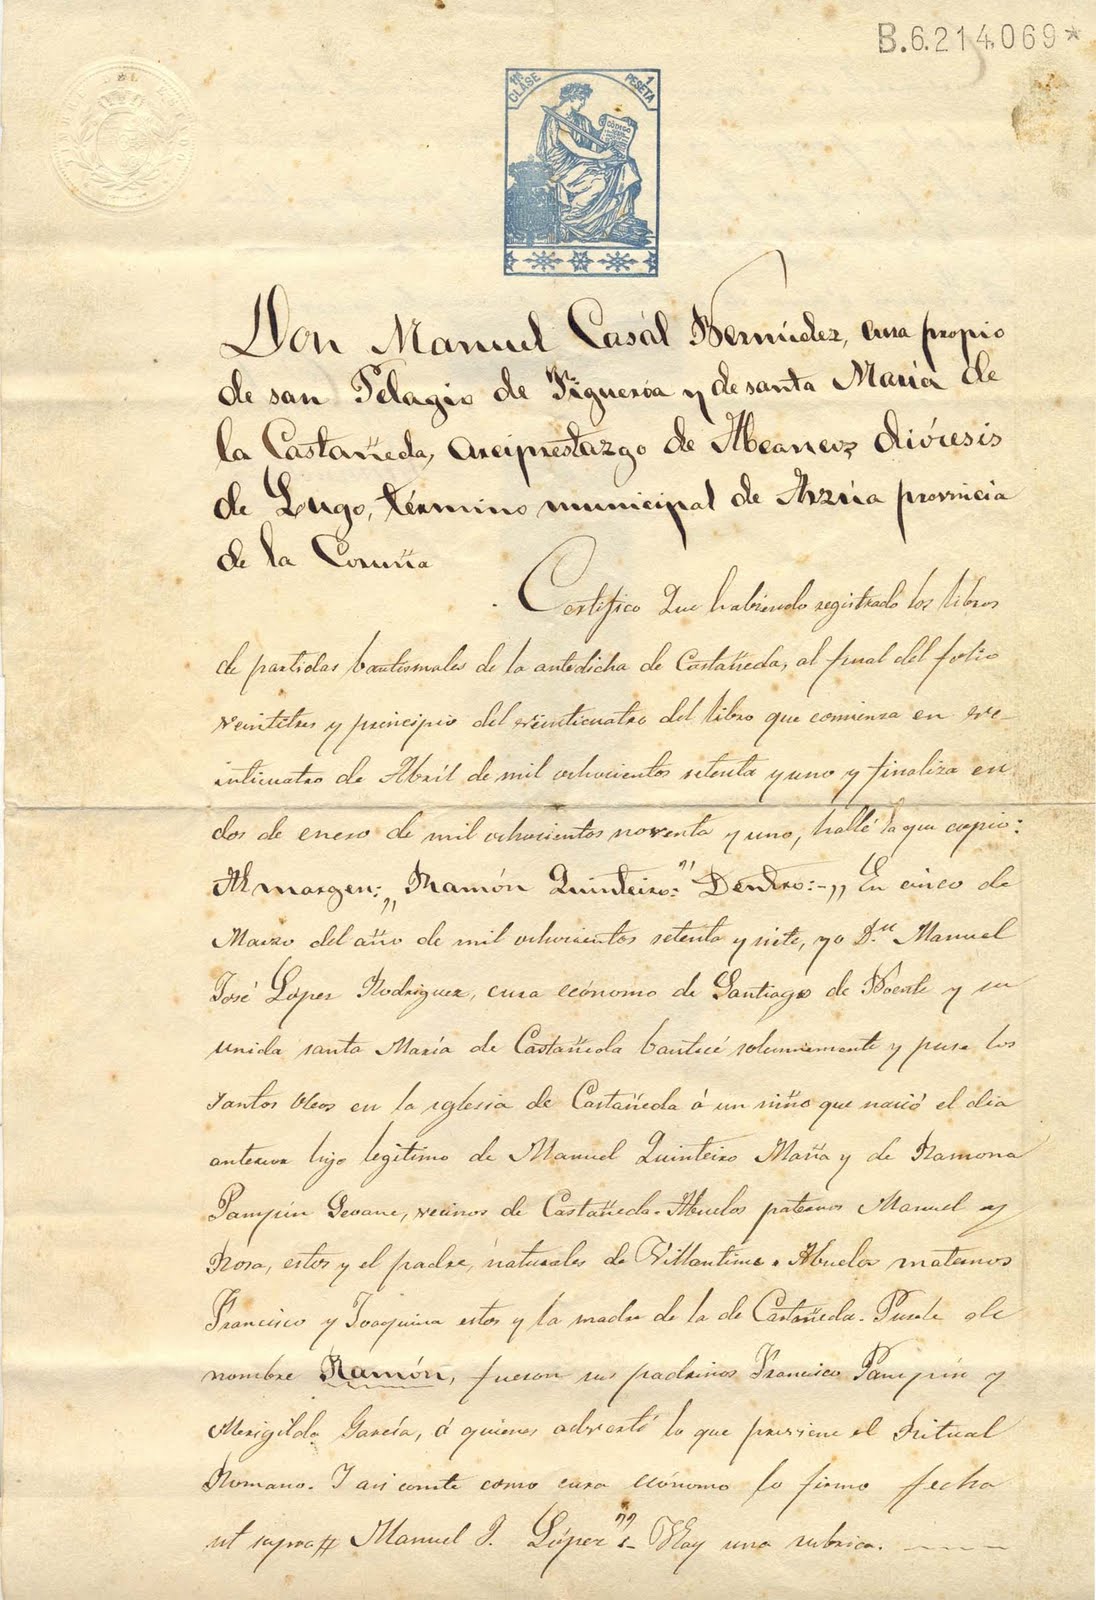 B.6.214,069*
DEL
11ª CLASE
1 PESETA
CÓDIGO
Don Manuel Casál Bermúdez, cura propio
de san Pelagio de Figueróa y de santa María de
la Castañeda, arciprestazgo de Abeancos diócesis
de Lugo, término municipal de Arzúa provincia
de la Coruña
Certifico Que habiendo registrado los libros
de partidas bautismales de la antedicha de Castañeda, al final del folio
veintitres y principio del veinticuatro del libro que comienza en ve-
inticuatro de Abríl de mil ochocientos setenta y uno y finaliza en
dos de enero de mil ochocientos noventa y uno, hallé la que copio:
Al margen: „Ramón Quinteiro:" Dentro:-„ En cinco de
Marzo del año de mil ochocientos setenta y siete, yo D.n Manuel
José López Rodriguez, cura ecónomo de Santiago de Boente y su
unida santa María de Castañeda bauticé solemnemente y puse los
santos óleos en la iglesia de Castañeda á un niño que nació el dia
anterior hijo legitimo de Manuel Quinteiro María y de Ramona
Pampín Seoane, vecinos de Castañeda. Abuelos paternos Manuel y
Rosa, estos y el padre, naturales de Villantime. Abuelos maternos
Francisco y Joaquina estos y la madre de la de Castañeda. Pusele de
nombre Ramón, fueron sus padrinos Francisco Pampín y
Merigilda García, á quienes advertí lo que previene el Ritual
Romano. Y asi conste como cura ecónomo lo firmo fecha
ut supra # Manuel J. López":- Hay una rubrica.